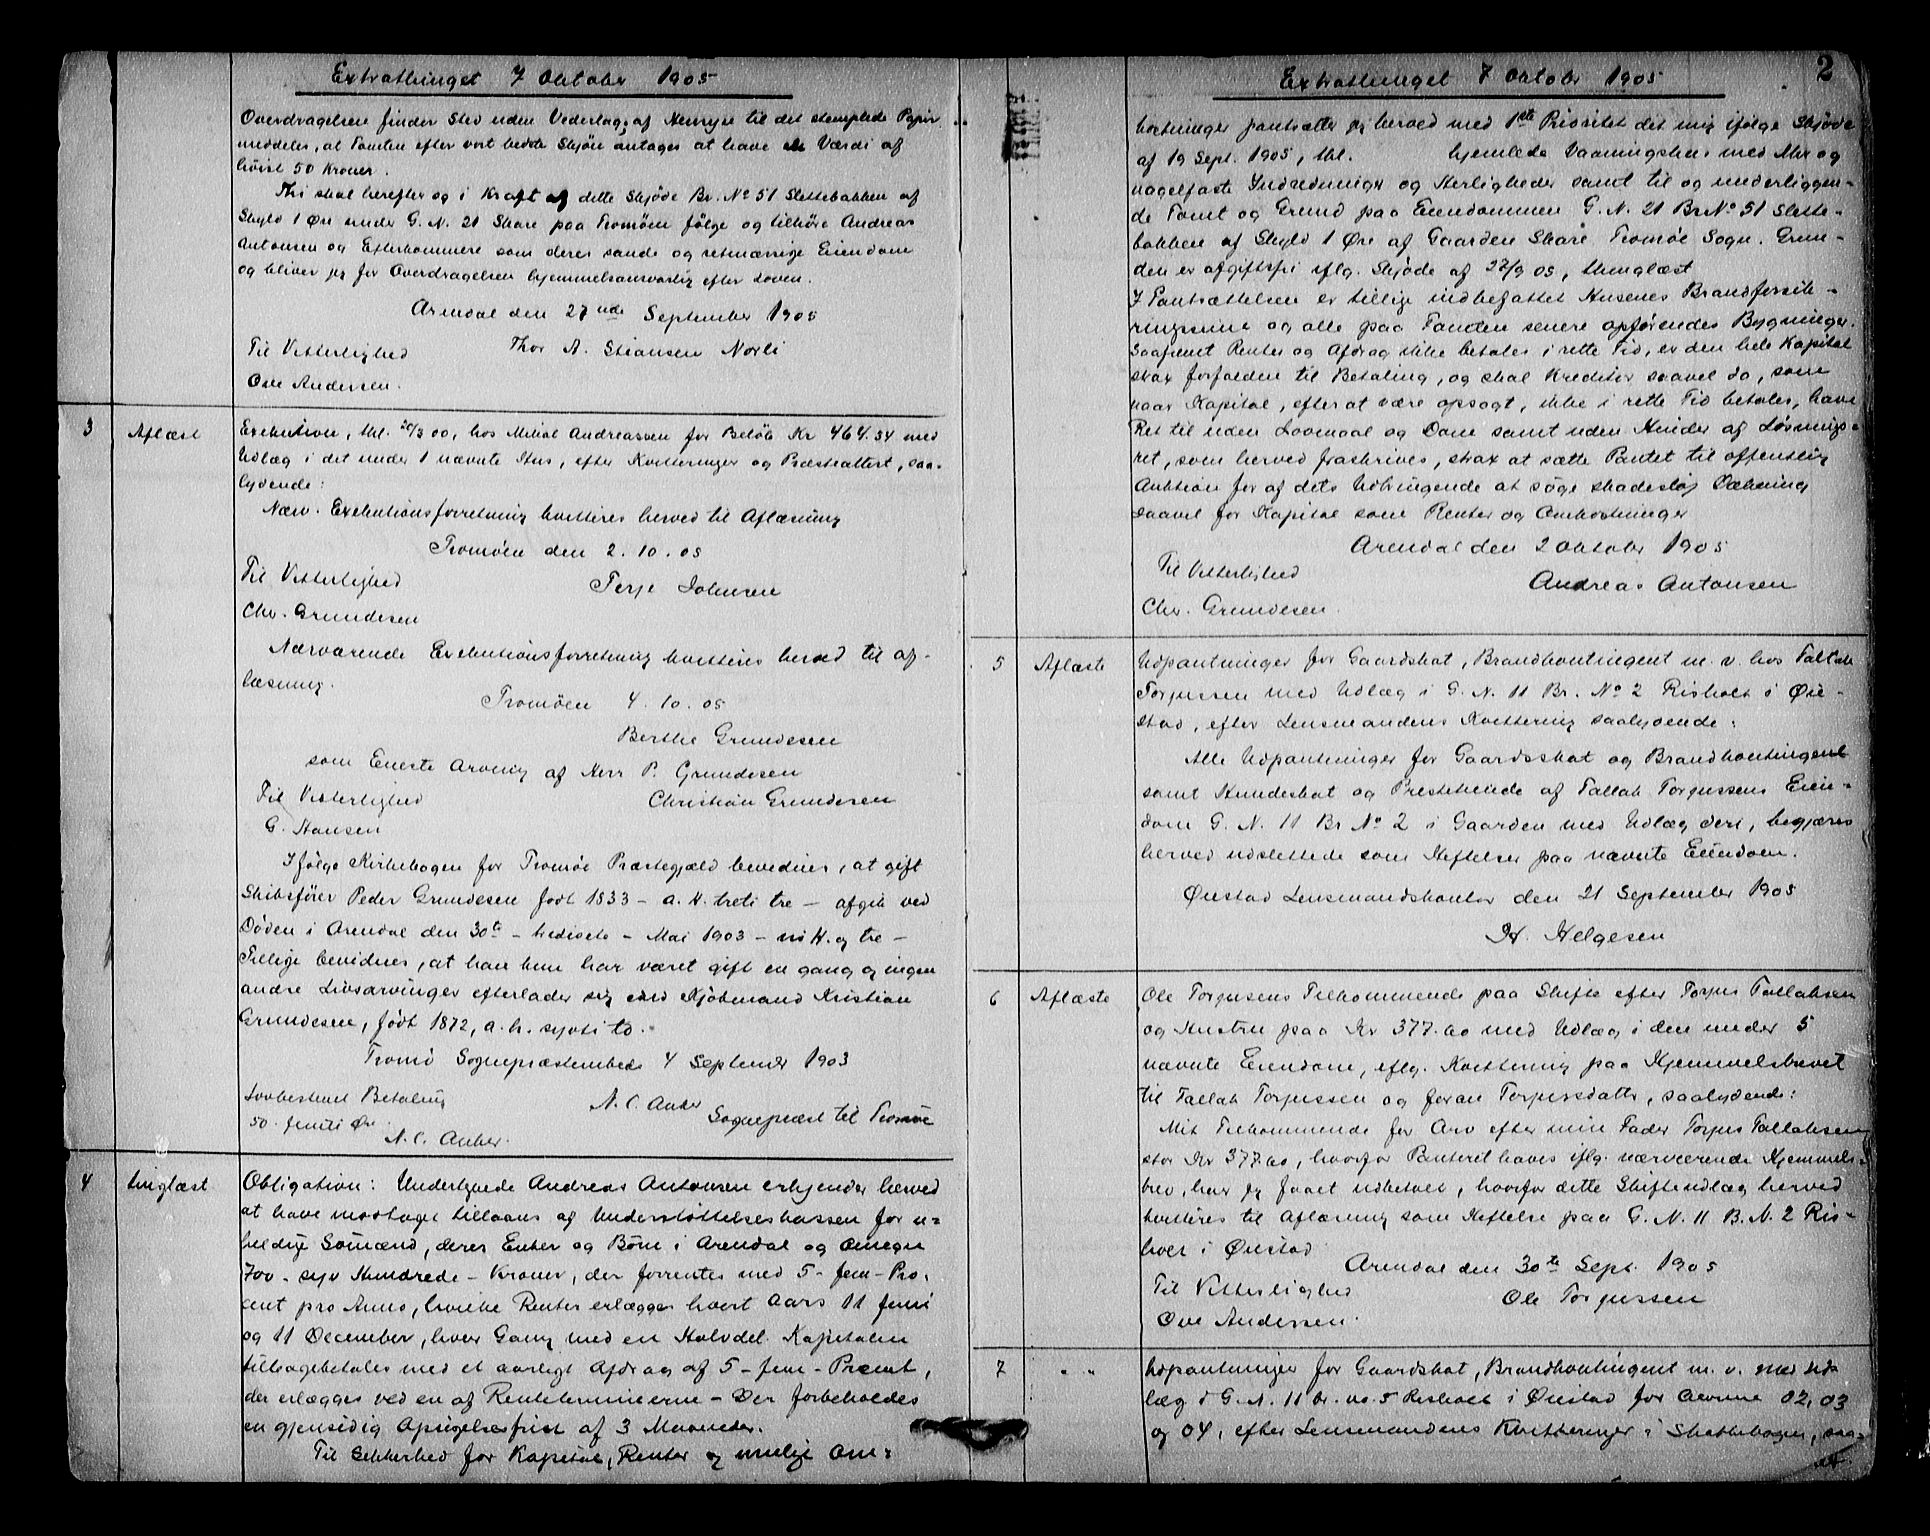 Extrathinget 7 Oktober 1905
Overdragelsen finder Sted uden Vederlag, af Hensyn til det stemplede Papir
meddeles, at Tomten efter vort bedste Skjøn antages at have en Værdi af
høist 50 Kroner.
Thi skal herefter og i Kraft af dette Skjøde Br. No 51 Slettebakken af
Skyld 1 Øre under G. N. 21 Skare paa Tromøen følge og tilhøre Andreas
Antonsen og Efterkommere som deres sande og retmæssige Eiendom
og bliver jeg for Overdragelsen hjemmelsansvarlig efter Loven.
Arendal den 27nde September 1905
Til Vitterlighed Thor A. Stiansen Norli
Ove Andersen.
3 Aflæst Exekution, thl. 20/3 00, hos Mikal Andreassen for Beløb Kr 464.54 med
Udlæg i det under 1 nævnte Hus, efter Kvitteringer og Præsteattest, saa-
lydende:
Nærv. Exekutionsforretning kvitteres herved til Aflæsning
Tromøen den 2. 10. 05
Til Vitterlighed Terje Johnsen
Chr. Grundesen
Nærværende Exekutionsforretning kvitteres herved til af-
læsning.
Tromøen 4. 10. 05
Berthe Grundesen
som Eneste Arving af Herr P. Grundesen
Til Vitterlighed Christian Grundesen
G. Hansen
Ifølge Kirkebogen for Tromøe Præstegjæld bevidnes, at gift
Skibsfører Peder Grundesen født 1833 - a. H. treti tre - afgik ved
Døden i Arendal den 30te - tredivte - Mai 1903 - ni H. og tre -
Tillige bevidnes, at han kun har været gift en gang og ingen
andre Livsarvinger efterlader sig end Kjøbmand Kristian
Grundesen, født 1872, a. h. sytti to.
Tromø Sognepræstembede 4 September 1903
Lovbestemt Betaling N. C. Anker Sognepræst til Tromøe
50 - femti Øre
N. C. Anker.
4 tinglæst Obligation: Undertegnede Andreas Antonsen erkjender herved
at have modtaget tillaans af Understøttelseskassen for u-
heldige Sømænd, deres Enker og Børn i Arendal og Omegn
700 - syv Hundrede - Kroner, der forrentes med 5 - fem - Pro-
cent pro Anno, hvilke Renter erlægges hvert Aars 11 Juni
og 11 December, hver Gang med en Halvdel. Kapitalen
tilbagebetales med et aarligt Afdrag af 5 - fem - Procent,
der erlægges ved en af Renteterminerne - Der forbeholdes
en gjensidig Opsigelsesfrist af 3 Maaneder.
Til Sikkerhed for Kapital, Renter og mulige Om-
2
Extrathinget 7 Oktober 1905
kostninger pantsætter jeg herved med 1ste Prioritet det mig ifølge Skjøde
af 19 Sept. 1905, thl. hjemlede Vaaningshus med Mur og
nagelfaste Indredninger og Herligheder samt til og underliggen-
de Tomt og Grund paa Eiendommen G. N. 21 Br No 51 Slette-
bakken af Skyld 1 Øre af Gaarden Skare Tromøe Sogn. Grun-
den er afgiftsfri iflg. Skjøde af 27/9 05, thinglæst
I Pantsættelsen er tillige indbefattet Husenes Brandforsik-
ringssum og alle paa Tomten senere opførendes Bygninger.
Saafremt Renter og Afdrag ikke betales i rette Tid, er den hele Kapital
strax forfalden til Betaling, og skal Kreditor saavel da, som
naar Kapital, efter at være opsagt, ikke i rette Tid betales, have
Ret til uden Lovmaal og Dom samt uden Hinder af Løsnings-
ret, som herved fraskrives, strax at sætte Pantet til offentlig
Auktion for af dets Udbringende at søge skadesløs Dækning
saavel for Kapital som Renter og Omkostninger
Arendal den 2 Oktober 1905
Til Vitterlighed Andreas Antonsen
Chr. Grundesen.
5 Aflæste Udpantninger for Gaardskat, Brandkontingent m. v. hos Tallak
Torgussen med Udlæg i G. N. 11 Br. No 2 Risholt i Øie-
stad, efter Lensmandens Kvittering saalydende:
Alle Udpantninger for Gaardsskat og Brandkontingent
samt Hundeskat og Prestetiende af Tallak Torgussens Eien-
dom G. N. 11 Br No 2 i Gaarden med Udlæg deri, begjæres
herved udslettede som Heftelser paa nævnte Eiendom.
Øiestad Lensmandskontor den 21 September 1905
H. Helgesen
6 Aflæste Ole Torgusens Tilkommende paa Skifte efter Torjus Tallaksen
og Hustru paa Kr 377.60 med Udlæg i den under 5
nævnte Eiendom, iflg. Kvittering paa Hjemmelsbrevet
til Tallak Torjussen og Joran Torjusdatter, saalydende:
Mit Tilkommende for Arv efter min Fader Torjus Tallaksen
stor Kr 377.60, hvorfor Panteret haves iflg. nærværende Hjemmels-
brev, har jeg faaet udbetalt, hvorfor dette Skifteudlæg herved
kvitteres til Aflæsning som Heftelse paa G. N. 11 B. N. 2 Ris-
holt i Øiestad.
Arendal den 30te Sept. 1905
Til Vitterlighed Ole Torjussen
Ove Andersen.
7 " " Udpantninger for Gaardskat, Brandkontingent m. v. med Ud-
læg i G. N. 11 br. no. 5 Risholt i Øiestad for Aarene 02, 03
og 04, efter Lensmandens Kvitteringer i Skattebogen, saa-